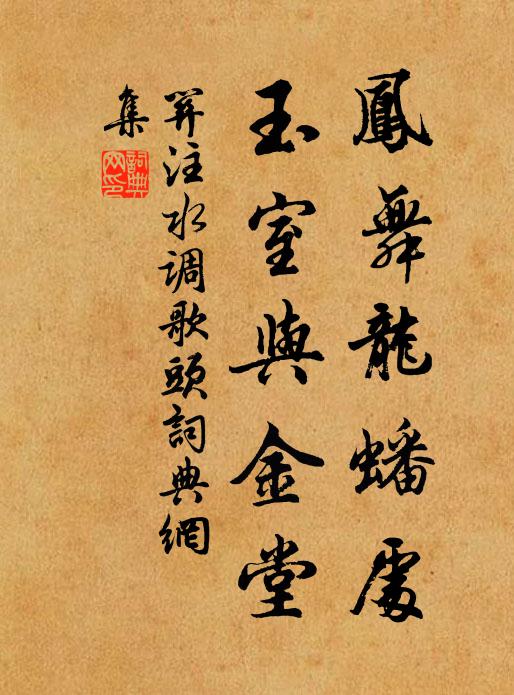 鳳舞龍蟠處
玉室與金堂
笄注水调歌頭詞典網
集
詞典
网印